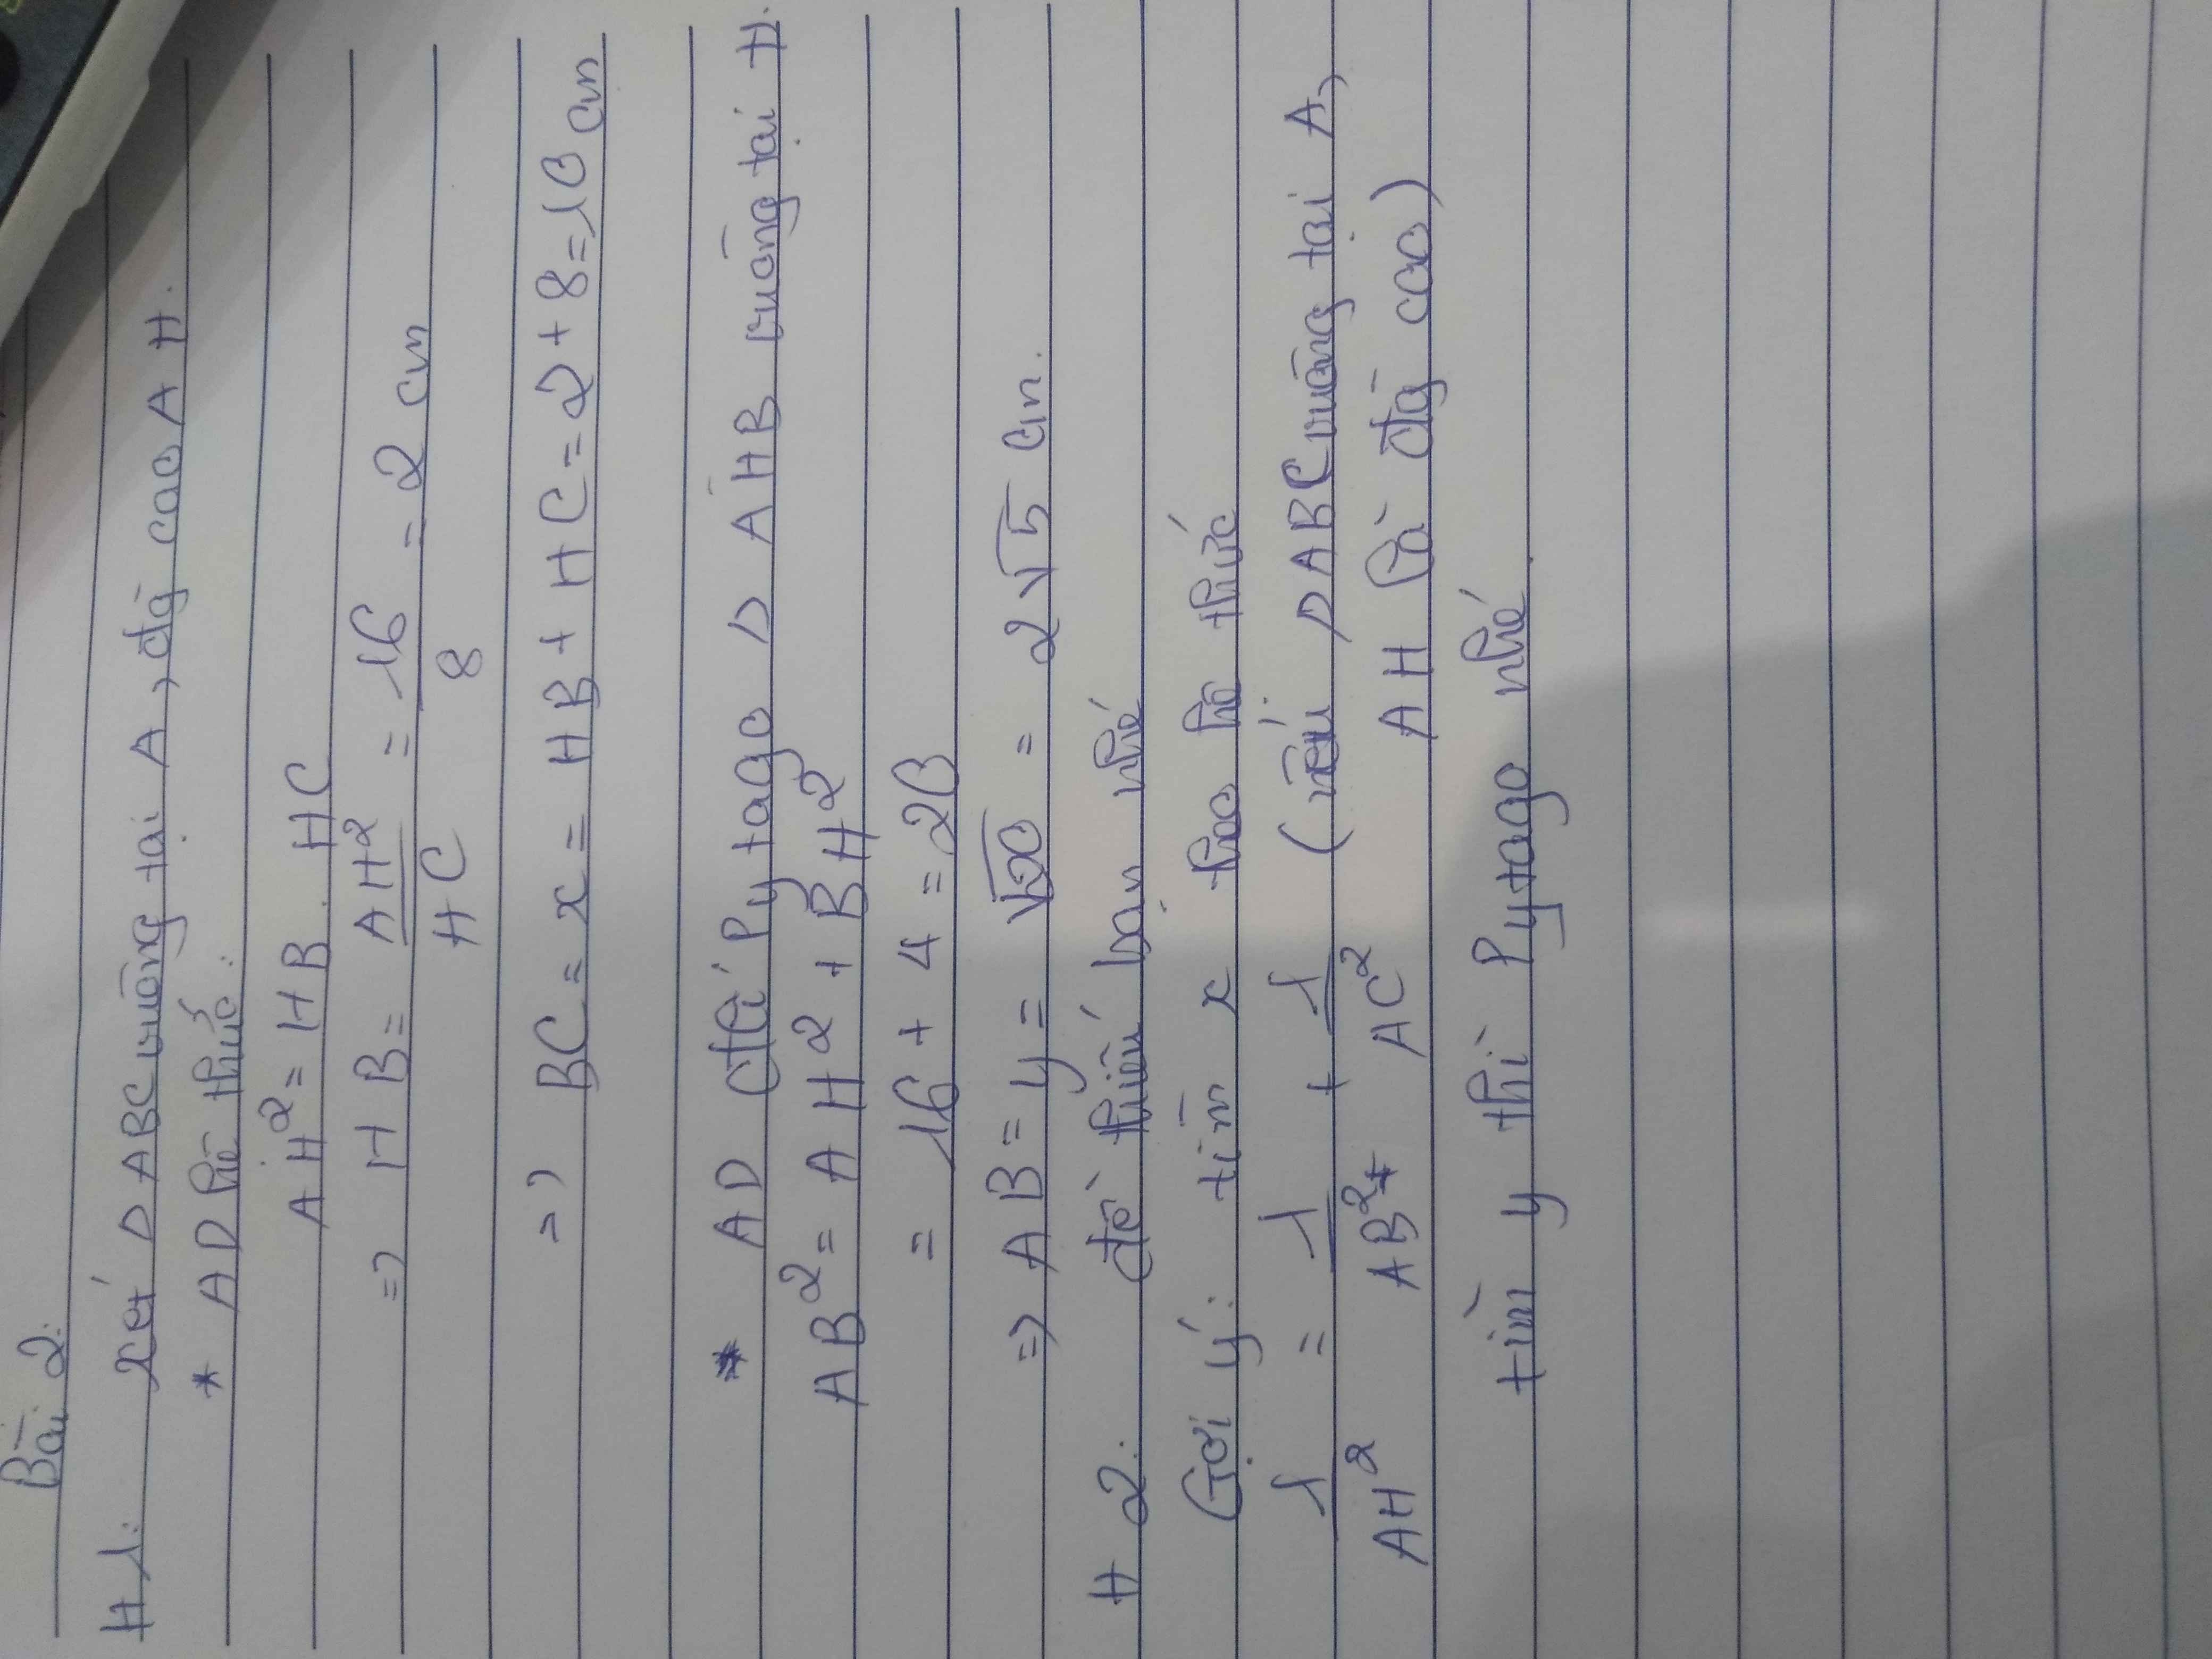 Bài 2:
H1: xét Δ ABC vuông tại A, đg cao AH.
* AD hệ thức:
AH² = HB . HC
=> HB = AH²/HC = 16/8 = 2 cm
=> BC = x = HB + HC = 2 + 8 = 10 cm
* AD Đlí Pytago Δ AHB vuông tại H.
AB² = AH² + BH²
= 16 + 4 = 20
=> AB = y = √20 = 2√5 cm.
H2: đề thiếu bạn nhé
Gợi ý: tìm x theo hệ thức
1/AH² = 1/AB² + 1/AC² (nếu Δ ABC vuông tại A,
AH là đg cao)
tìm y thì Pytago nhé